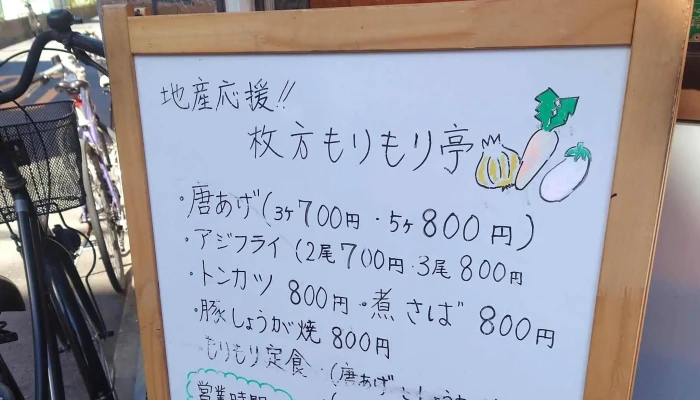 地産応援!!
枚方もりもり亭
・唐あげ(3ヶ700円・5ヶ800円)
・アジフライ(2尾700円・3尾800円
・トンカツ 800円・煮さば 800円
・豚しょうが焼 800円
もりもり定食・(唐あげ
営業時間